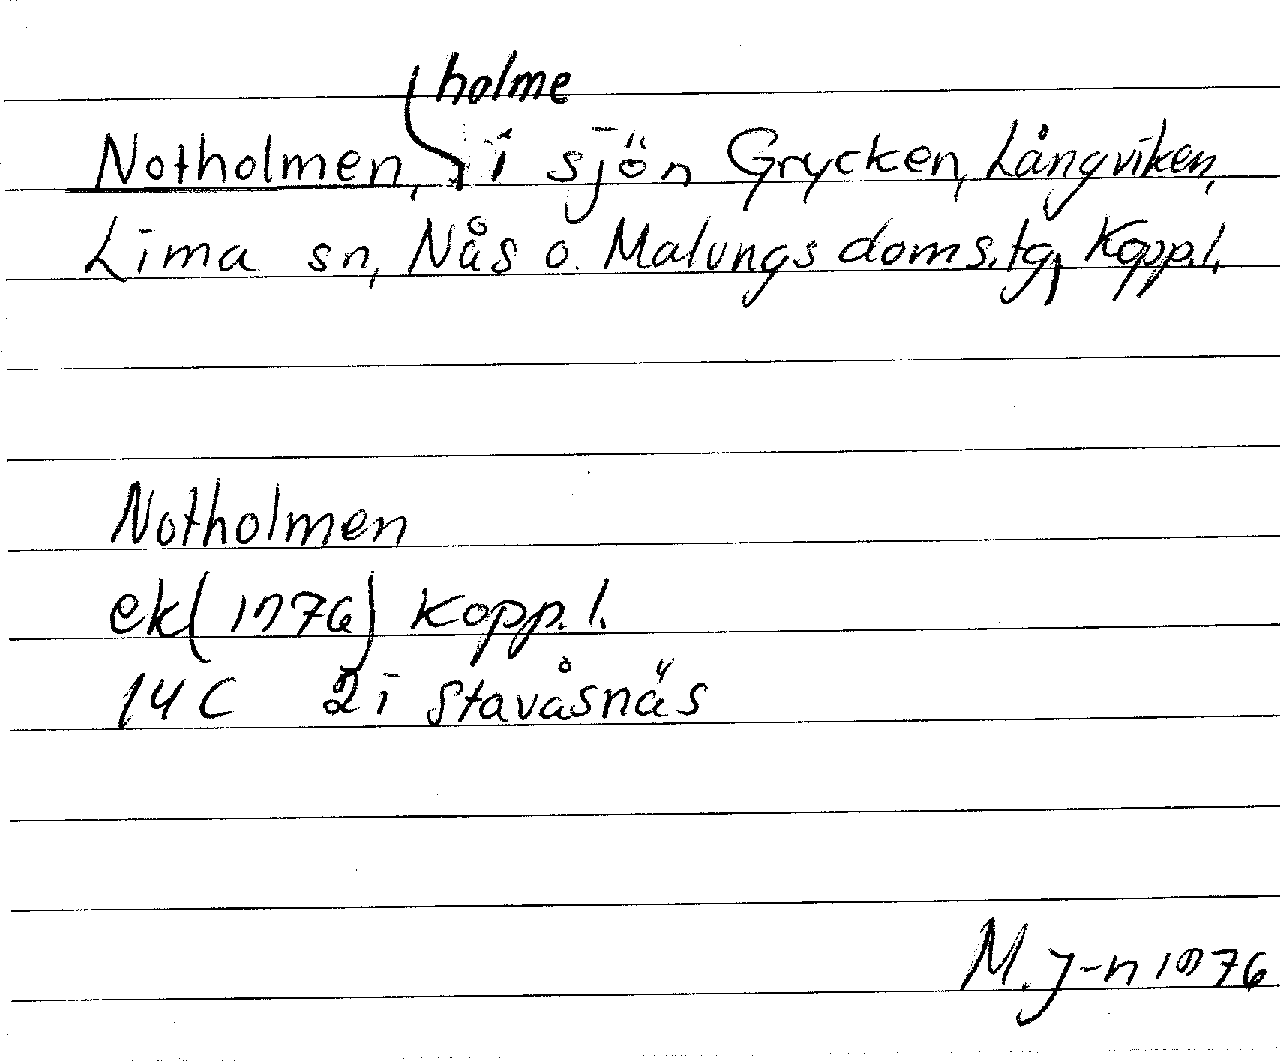 holme
Notholmen, i sjön Grycken, Långviken,
Lima sn, Nås o. Malungs doms.tg, Kopp.l.
Notholmen
ek (1976) Kopp.l.
14 C 2i Stavåsnäs
M. J-n 1976